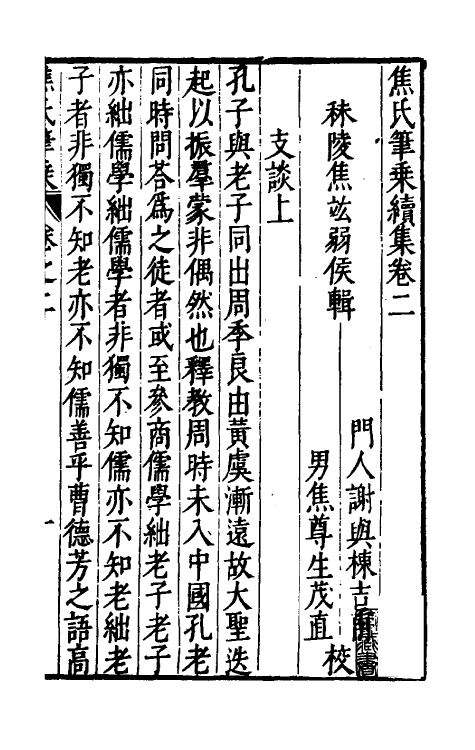 焦氏筆乘續集卷二
秣陵焦竑弱侯輯
門人謝與棟吉
男焦尊生茂直
校
支談上
孔子與老子同出周季良由黃虞漸遠故大聖迭
起以振羣蒙非偶然也釋教周時未入中國孔老
同時問荅爲之徒者或至參商儒學絀老子老子
亦絀儒學絀儒學者非獨不知儒亦不知老絀老
子者非獨不知老亦不知儒善乎曹德芳之語高
焦氏筆乘
卷之二
一